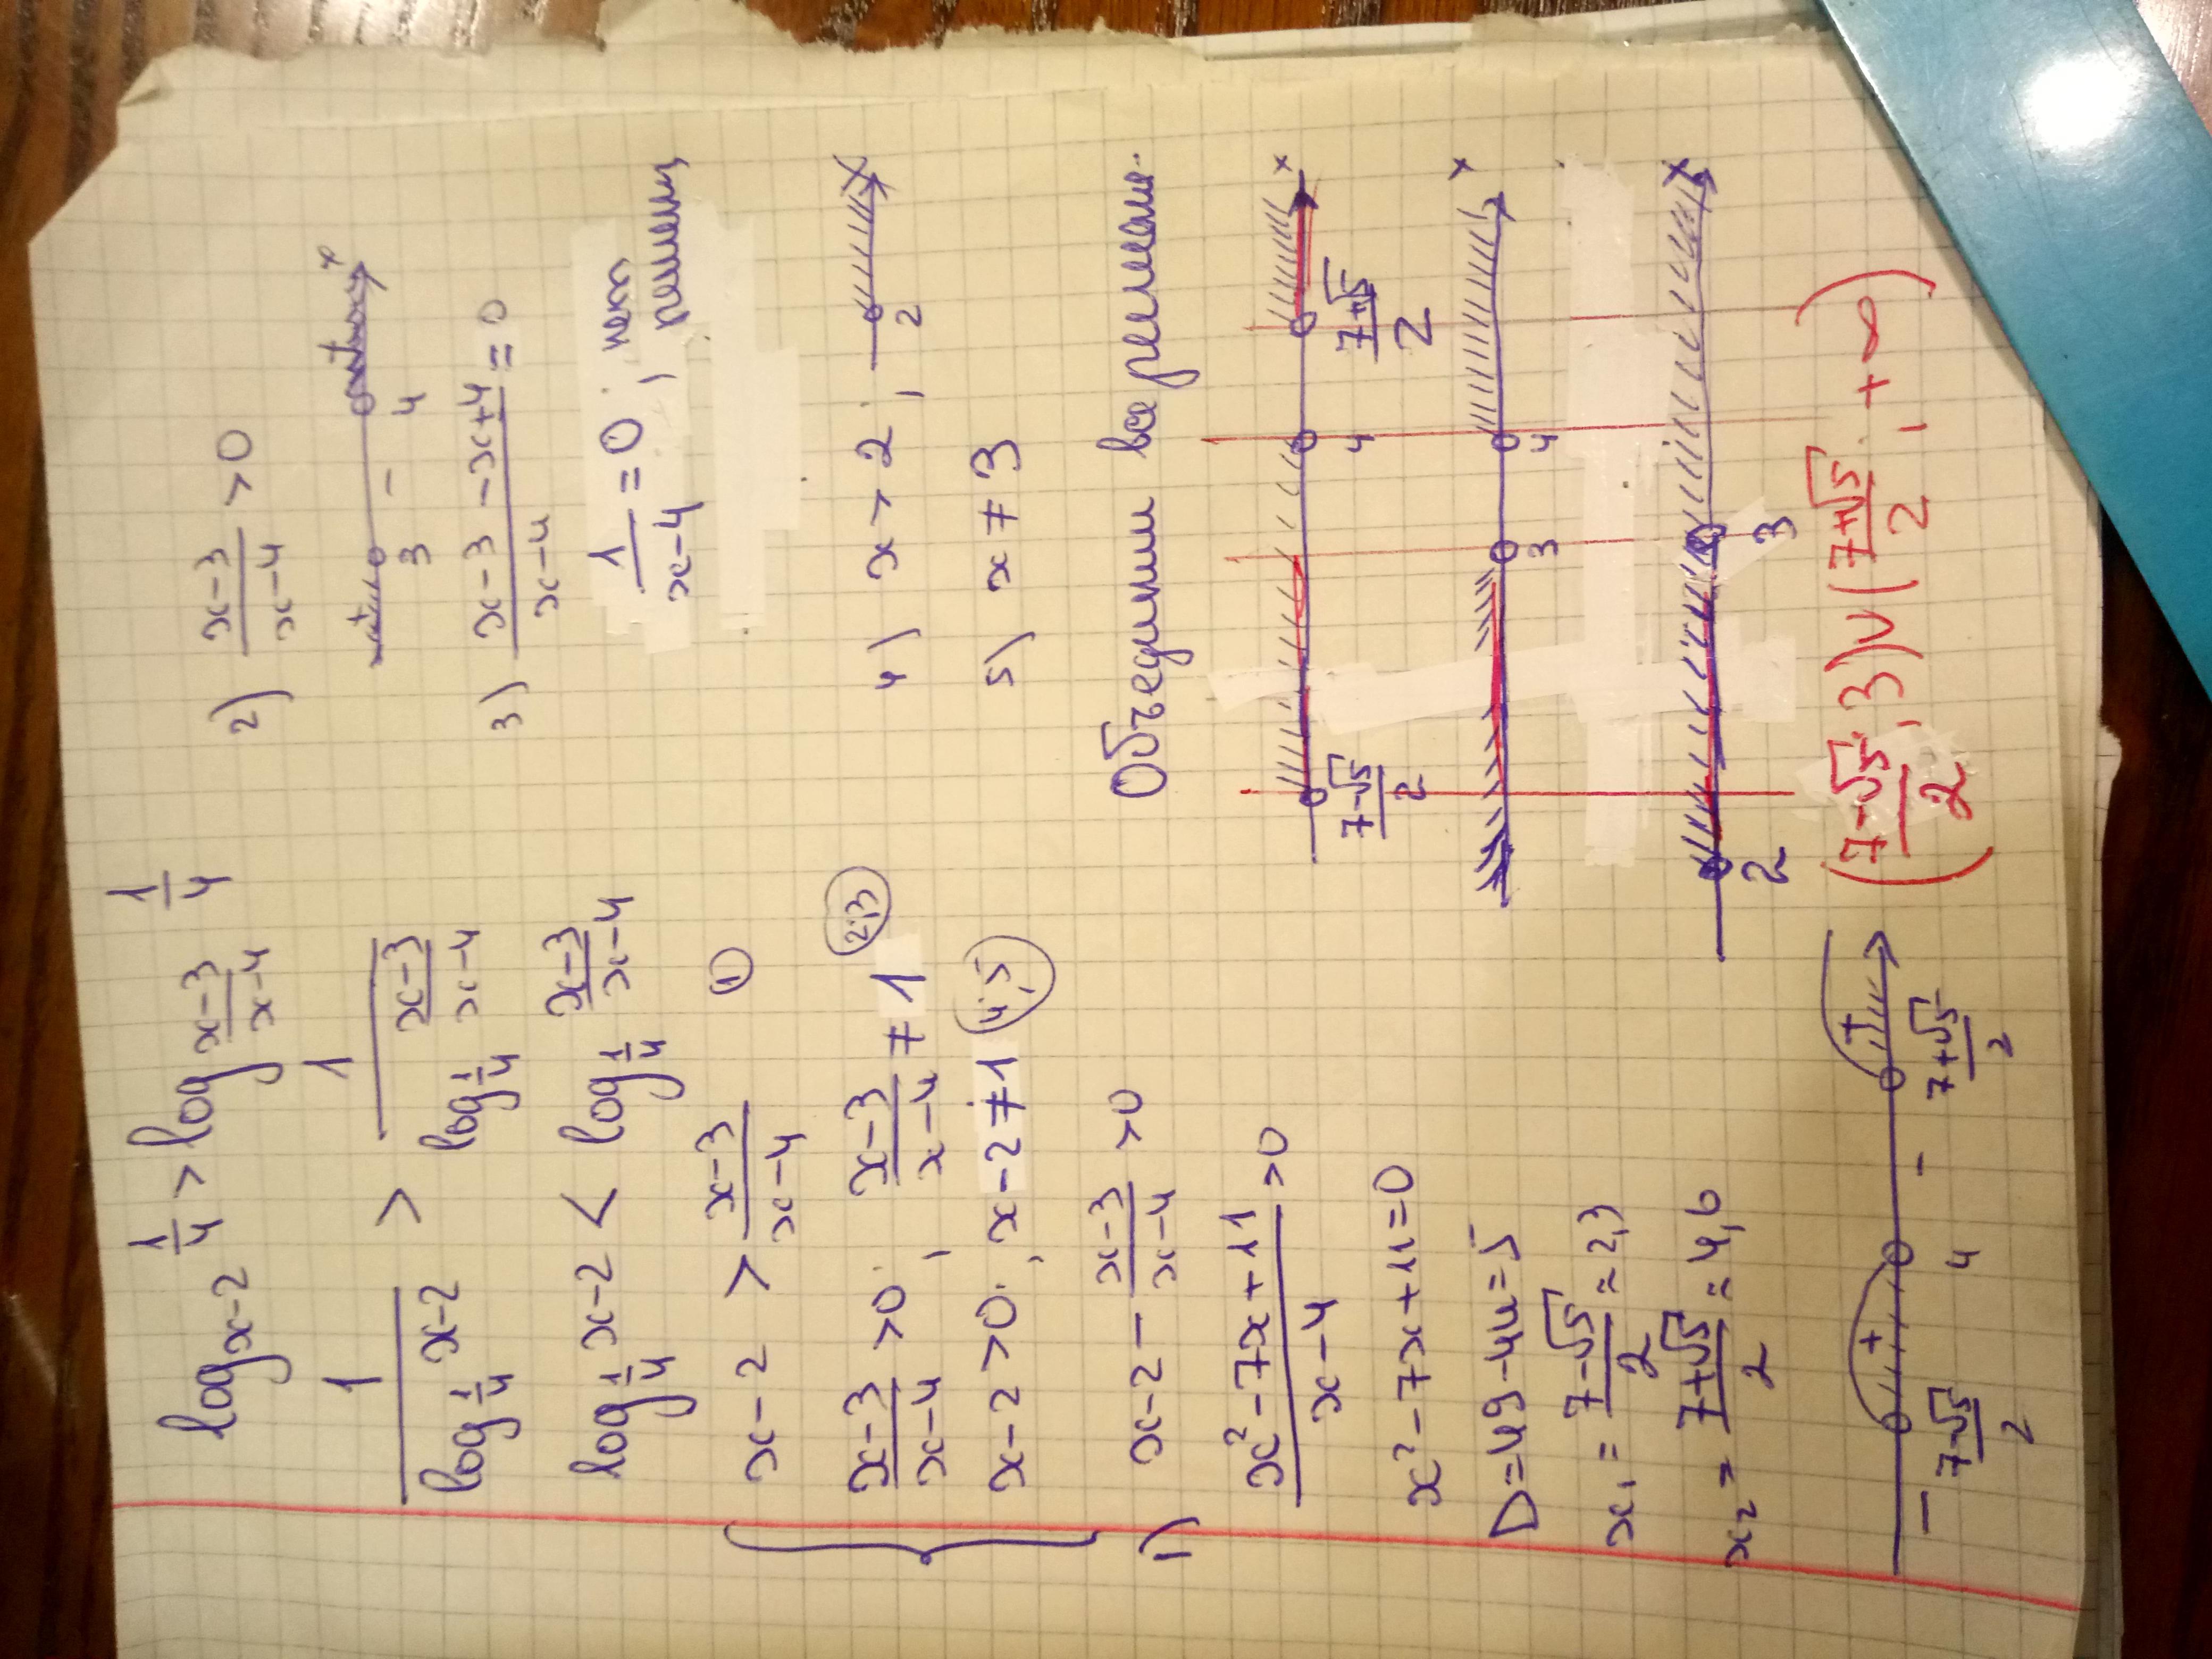 log_{x-2} 1/4 > log_{(x-3)/(x-4)} 1/4
1/(log_{1/4} x-2) > 1/(log_{1/4} (x-3)/(x-4))
log_{1/4} x-2 < log_{1/4} (x-3)/(x-4)
x-2 > (x-3)/(x-4) ①
(x-3)/(x-4) >0; (x-3)/(x-4) ≠ 1 (2;3)
x-2>0; x-2≠1 (4;5)
1) x-2 - (x-3)/(x-4) >0
(x²-7x+11)/(x-4) >0
x²-7x+11=0
D=49-44=5
x₁ = (7-√5)/2 = 2,3
x₂ = (7+√5)/2 = 4,6
- + - +
(7-√5)/2 4 (7+√5)/2
2) (x-3)/(x-4) >0
+ - + x
3 4
3) (x-3-x+4)/(x-4) =0
1/(x-4) =0; нет
решений
4) x>2; x
2
5) x≠3
Объединим все решения.
x
(7-√5)/2 4 (7+√5)/2
x
3 4
x
2 3
((7-√5)/2; 3)∪((7+√5)/2; +∞)